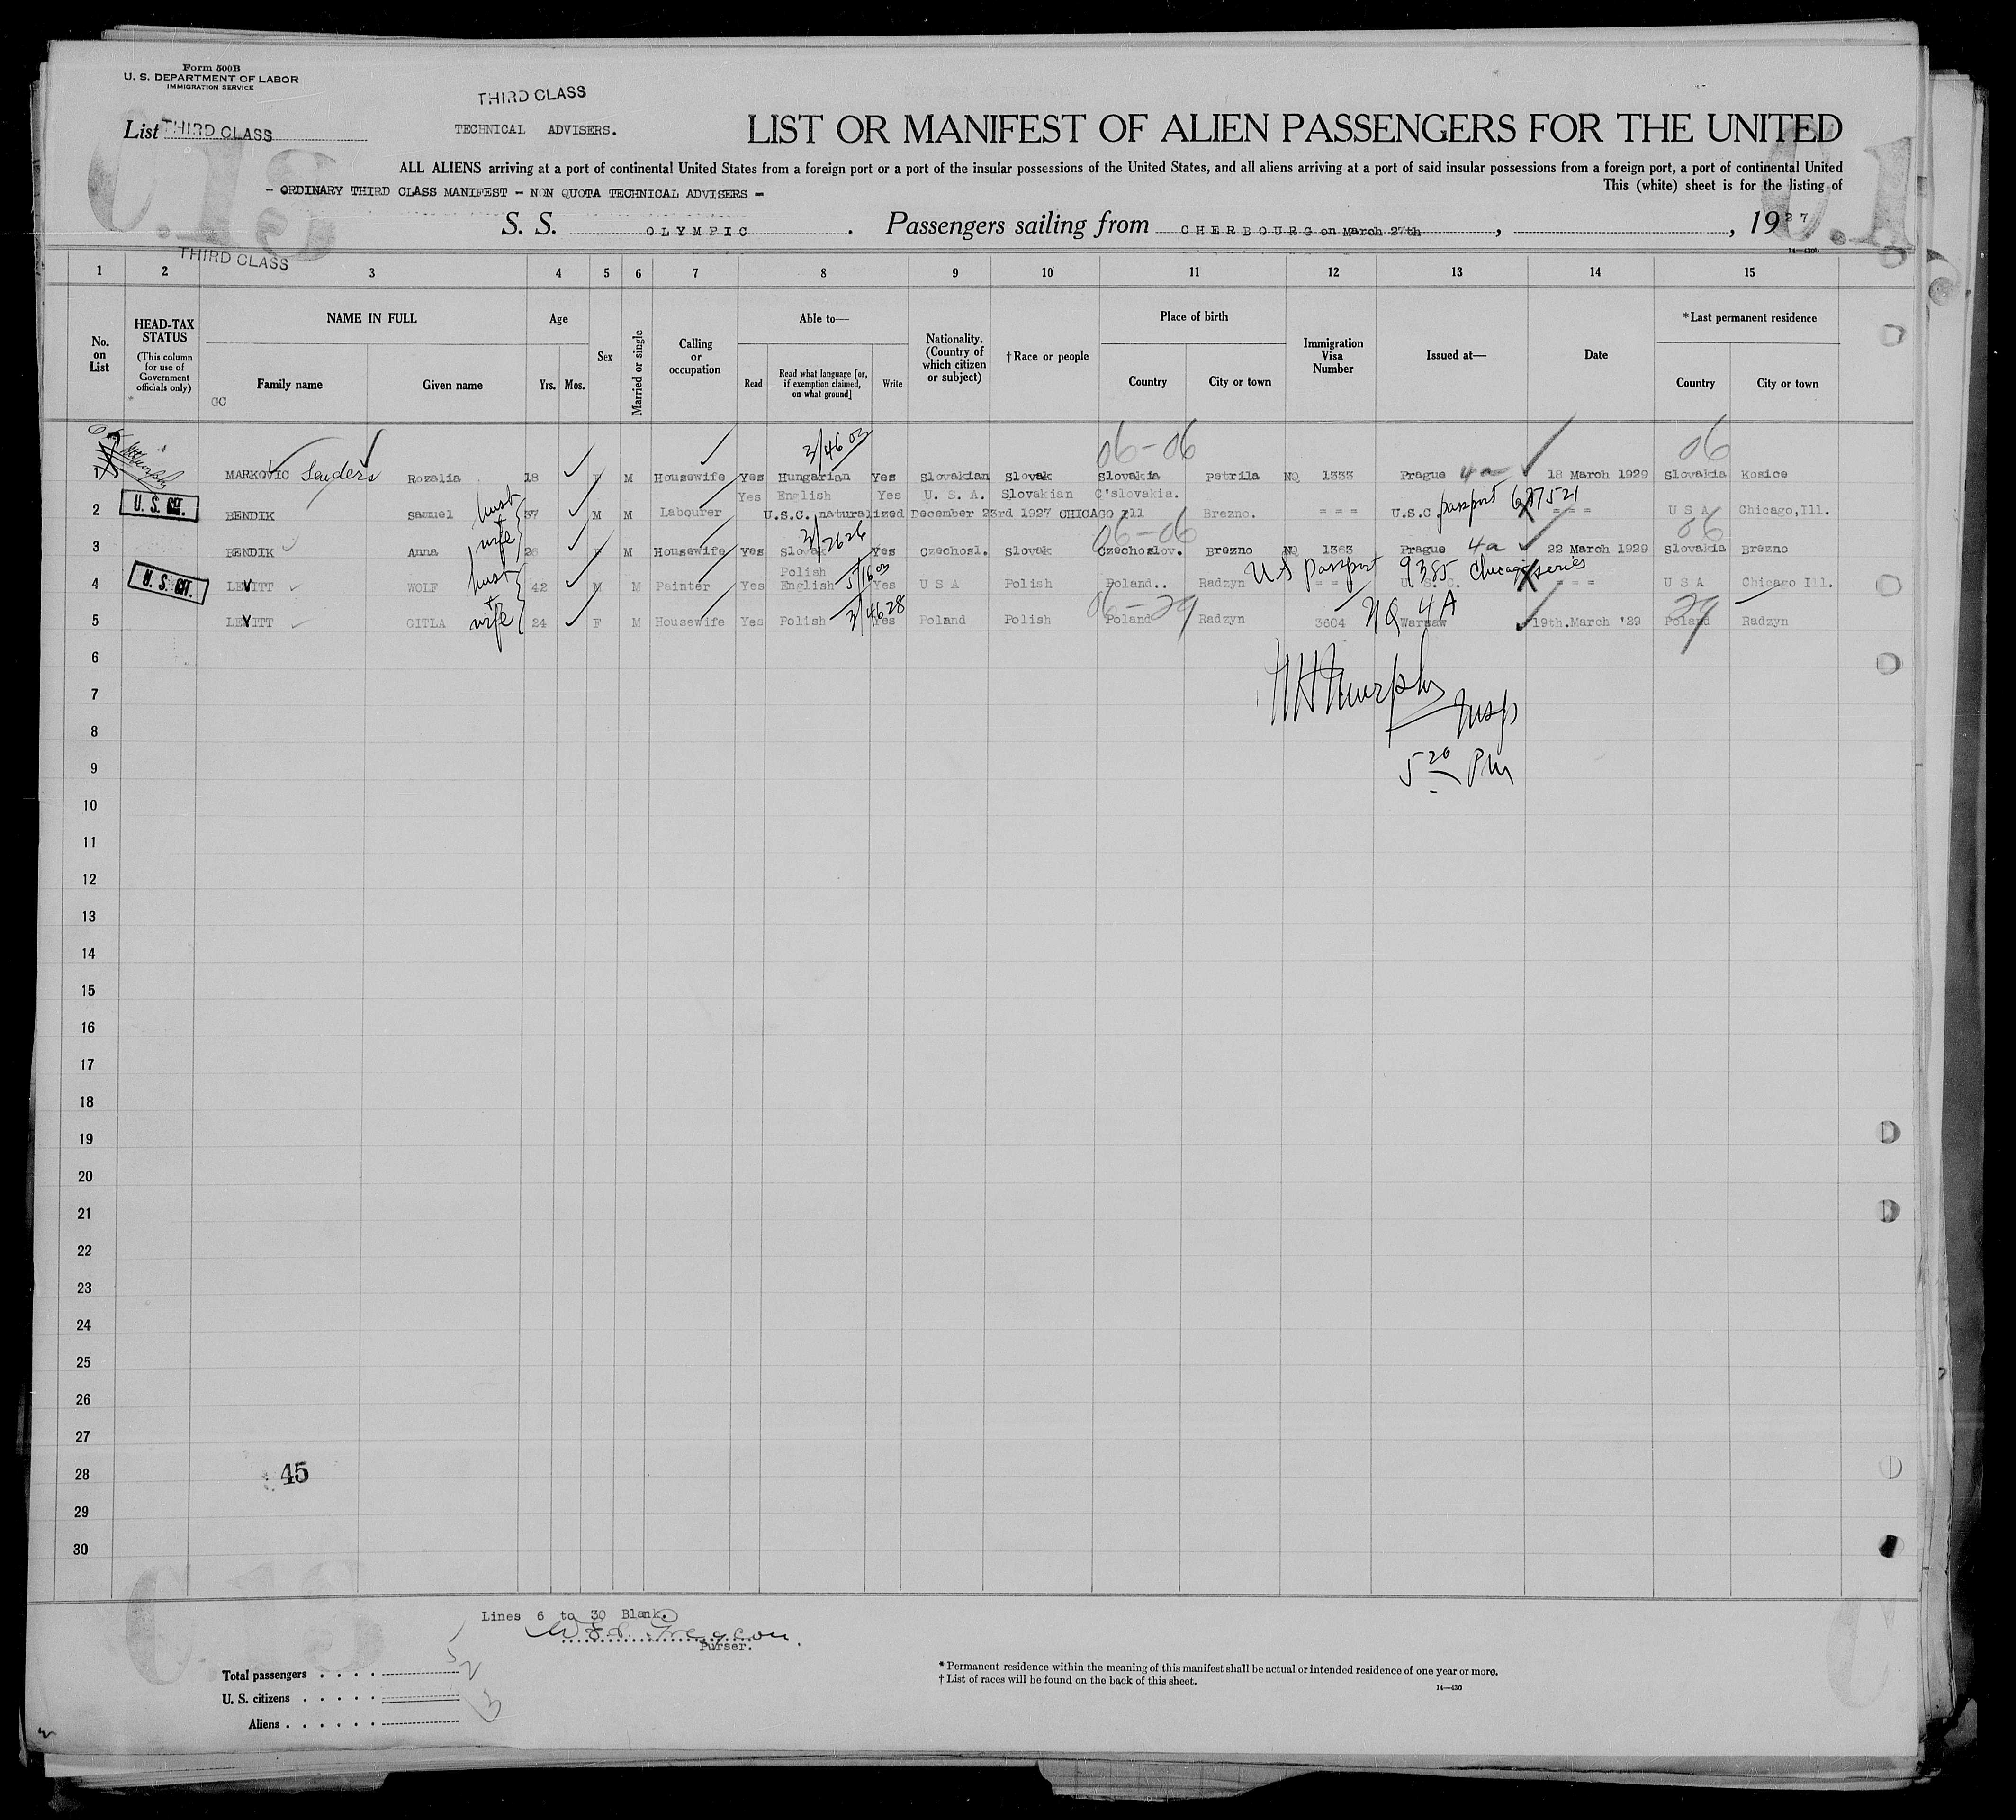 Form 500B
U. S. DEPARTMENT OF LABOR
IMMIGRATION SERVICE
THIRD CLASS
List THIRD CLASS
TECHNICAL ADVISERS.
LIST OR MANIFEST OF ALIEN PASSENGERS FOR THE UNITED
ALL ALIENS arriving at a port of continental United States from a foreign port or a port of the insular possessions of the United States, and all aliens arriving at a port of said insular possessions from a foreign port, a port of continental United
This (white) sheet is for the listing of
- ORDINARY THIRD CLASS MANIFEST - NON QUOTA TECHNICAL ADVISERS -
S. S. OLYMPIC. Passengers sailing from CHERBOURG on March 27th, , 1927
14—430b
THIRD CLASS
1 2 3 4 5 6 7 8 9 10 11 12 13 14 15
No. on List
HEAD-TAX STATUS
(This column for use of Government officials only)
NAME IN FULL
Family name
Given name
GC
Age
Yrs. Mos.
Sex
Married or single
Calling or occupation
Able to—
Read
Read what language [or, if exemption claimed, on what ground]
Write
Nationality. (Country of which citizen or subject)
†Race or people
Place of birth
Country
City or town
Immigration Visa Number
Issued at—
Date
*Last permanent residence
Country
City or town
3/46 03 06-06 06
1 MARKOVIC Sanders Rozalia 18 F M Housewife Yes Hungarian Yes Slovakian Slovak Slovakia Petrila NQ 1333 Prague 4a 18 March 1929 Slovakia Kosice
Yes English Yes U. S. A. Slovakian C'slovakia. passport 677521
2 U. S. CIT. BENDIK Samuel husb 37 M M Labourer U.S.C. naturalized December 23rd 1927 CHICAGO Ill Brezno. = = = U.S.C. = = = U S A Chicago,Ill.
+ 3/2626 06-06 06
3 BENDIK Anna wife 26 F M Housewife Yes Slovak Yes Czechosl. Slovak Czechoslov. Brezno NQ 1363 Prague 4a 22 March 1929 Slovakia Brezno
Polish 5/16 03 US Passport 9385 Chicago series
4 U. S. CIT. LEVITT WOLF husb 42 M M Painter Yes English Yes U S A Polish Poland.. Radzyn = = U. S. C. = = = U S A Chicago Ill.
+ 3/4628 06-29 NQ 4A 29
5 LEVITT GITLA wife 24 F M Housewife Yes Polish Yes Poland Polish Poland Radzyn 3604 Warsaw 19th.March '29 Poland Radzyn
6
7 Murphy
8 Insp
9 5 20 Pm
10
11
12
13
14
15
16
17
18
19
20
21
22
23
24
25
26
27
28 45
29
30
Lines 6 to 30 Blank.
Purser.
Total passengers 5
U. S. citizens 2
Aliens 3
* Permanent residence within the meaning of this manifest shall be actual or intended residence of one year or more.
† List of races will be found on the back of this sheet.
14—430